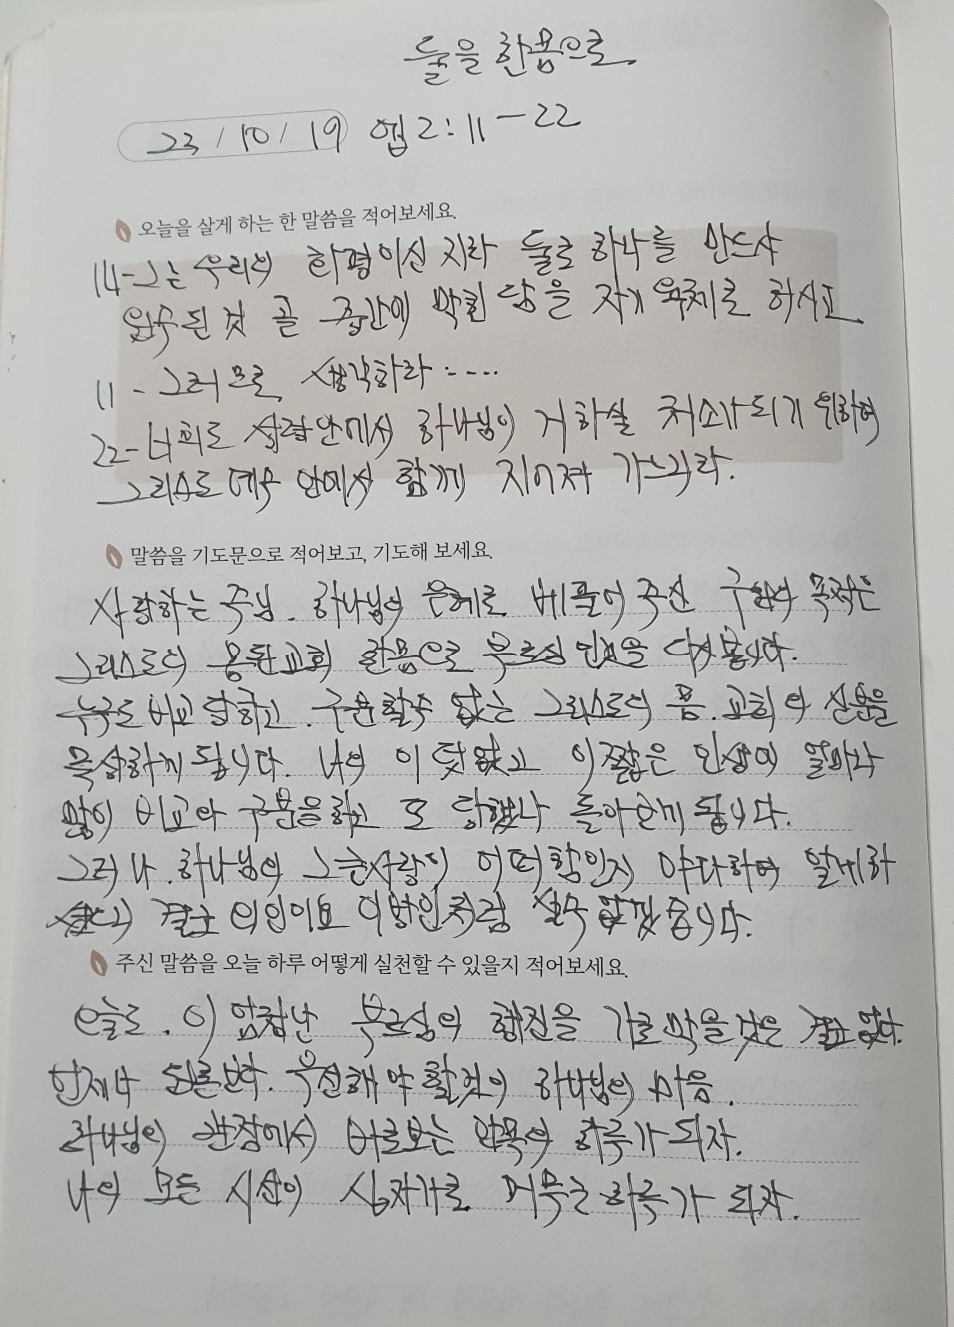 둘을 한몸으로
23 / 10 / 19 엡 2:11-22
오늘을 살게 하는 한 말씀을 적어보세요.
14-그는 우리의 화평이신 지라 둘로 하나를 만드사
원수된 것 곧 중간에 막힌 담을 자기 육체로 하시고
11 - 그러므로 생각하라 ....
22-너희도 성령안에서 하나님이 거하실 처소가 되기 위하여
그리스도 예수 안에서 함께 지어져 가느니라.
말씀을 기도문으로 적어보고, 기도해 보세요.
사랑하는 주님. 하나님의 은혜로 베풀어 주신 구원의 목적은
그리스도의 몽된교회 한몸으로 부르심 다시 봅니다.
누구도 비교 당하고. 구분할수 없는 그리스도의 몸. 교회의 신분을
묵상하게 됩니다. 나의 이 덧없고 이 짧은 인생에 얼마나
많이 비교와 구분을하고 또 당했나 돌아보게 됩니다.
그러나. 하나님의 그 큰사랑이 어떠함인지 알게하
결코 이방인처럼 살수 없겠습니다.
주신 말씀을 오늘 하루 어떻게 실천할 수 있을지 적어보세요.
오늘도. 이 엄청난 부르심의 행진을 가로 막을 것은 결코 없다.
언제나 되른본다. 우선해야 할것이 하나님의 마음.
하나님의 관점에서 바로보는 안목의 하루가 되자.
나의 모든 시선이 십자가로 머무는 하루가 되자.